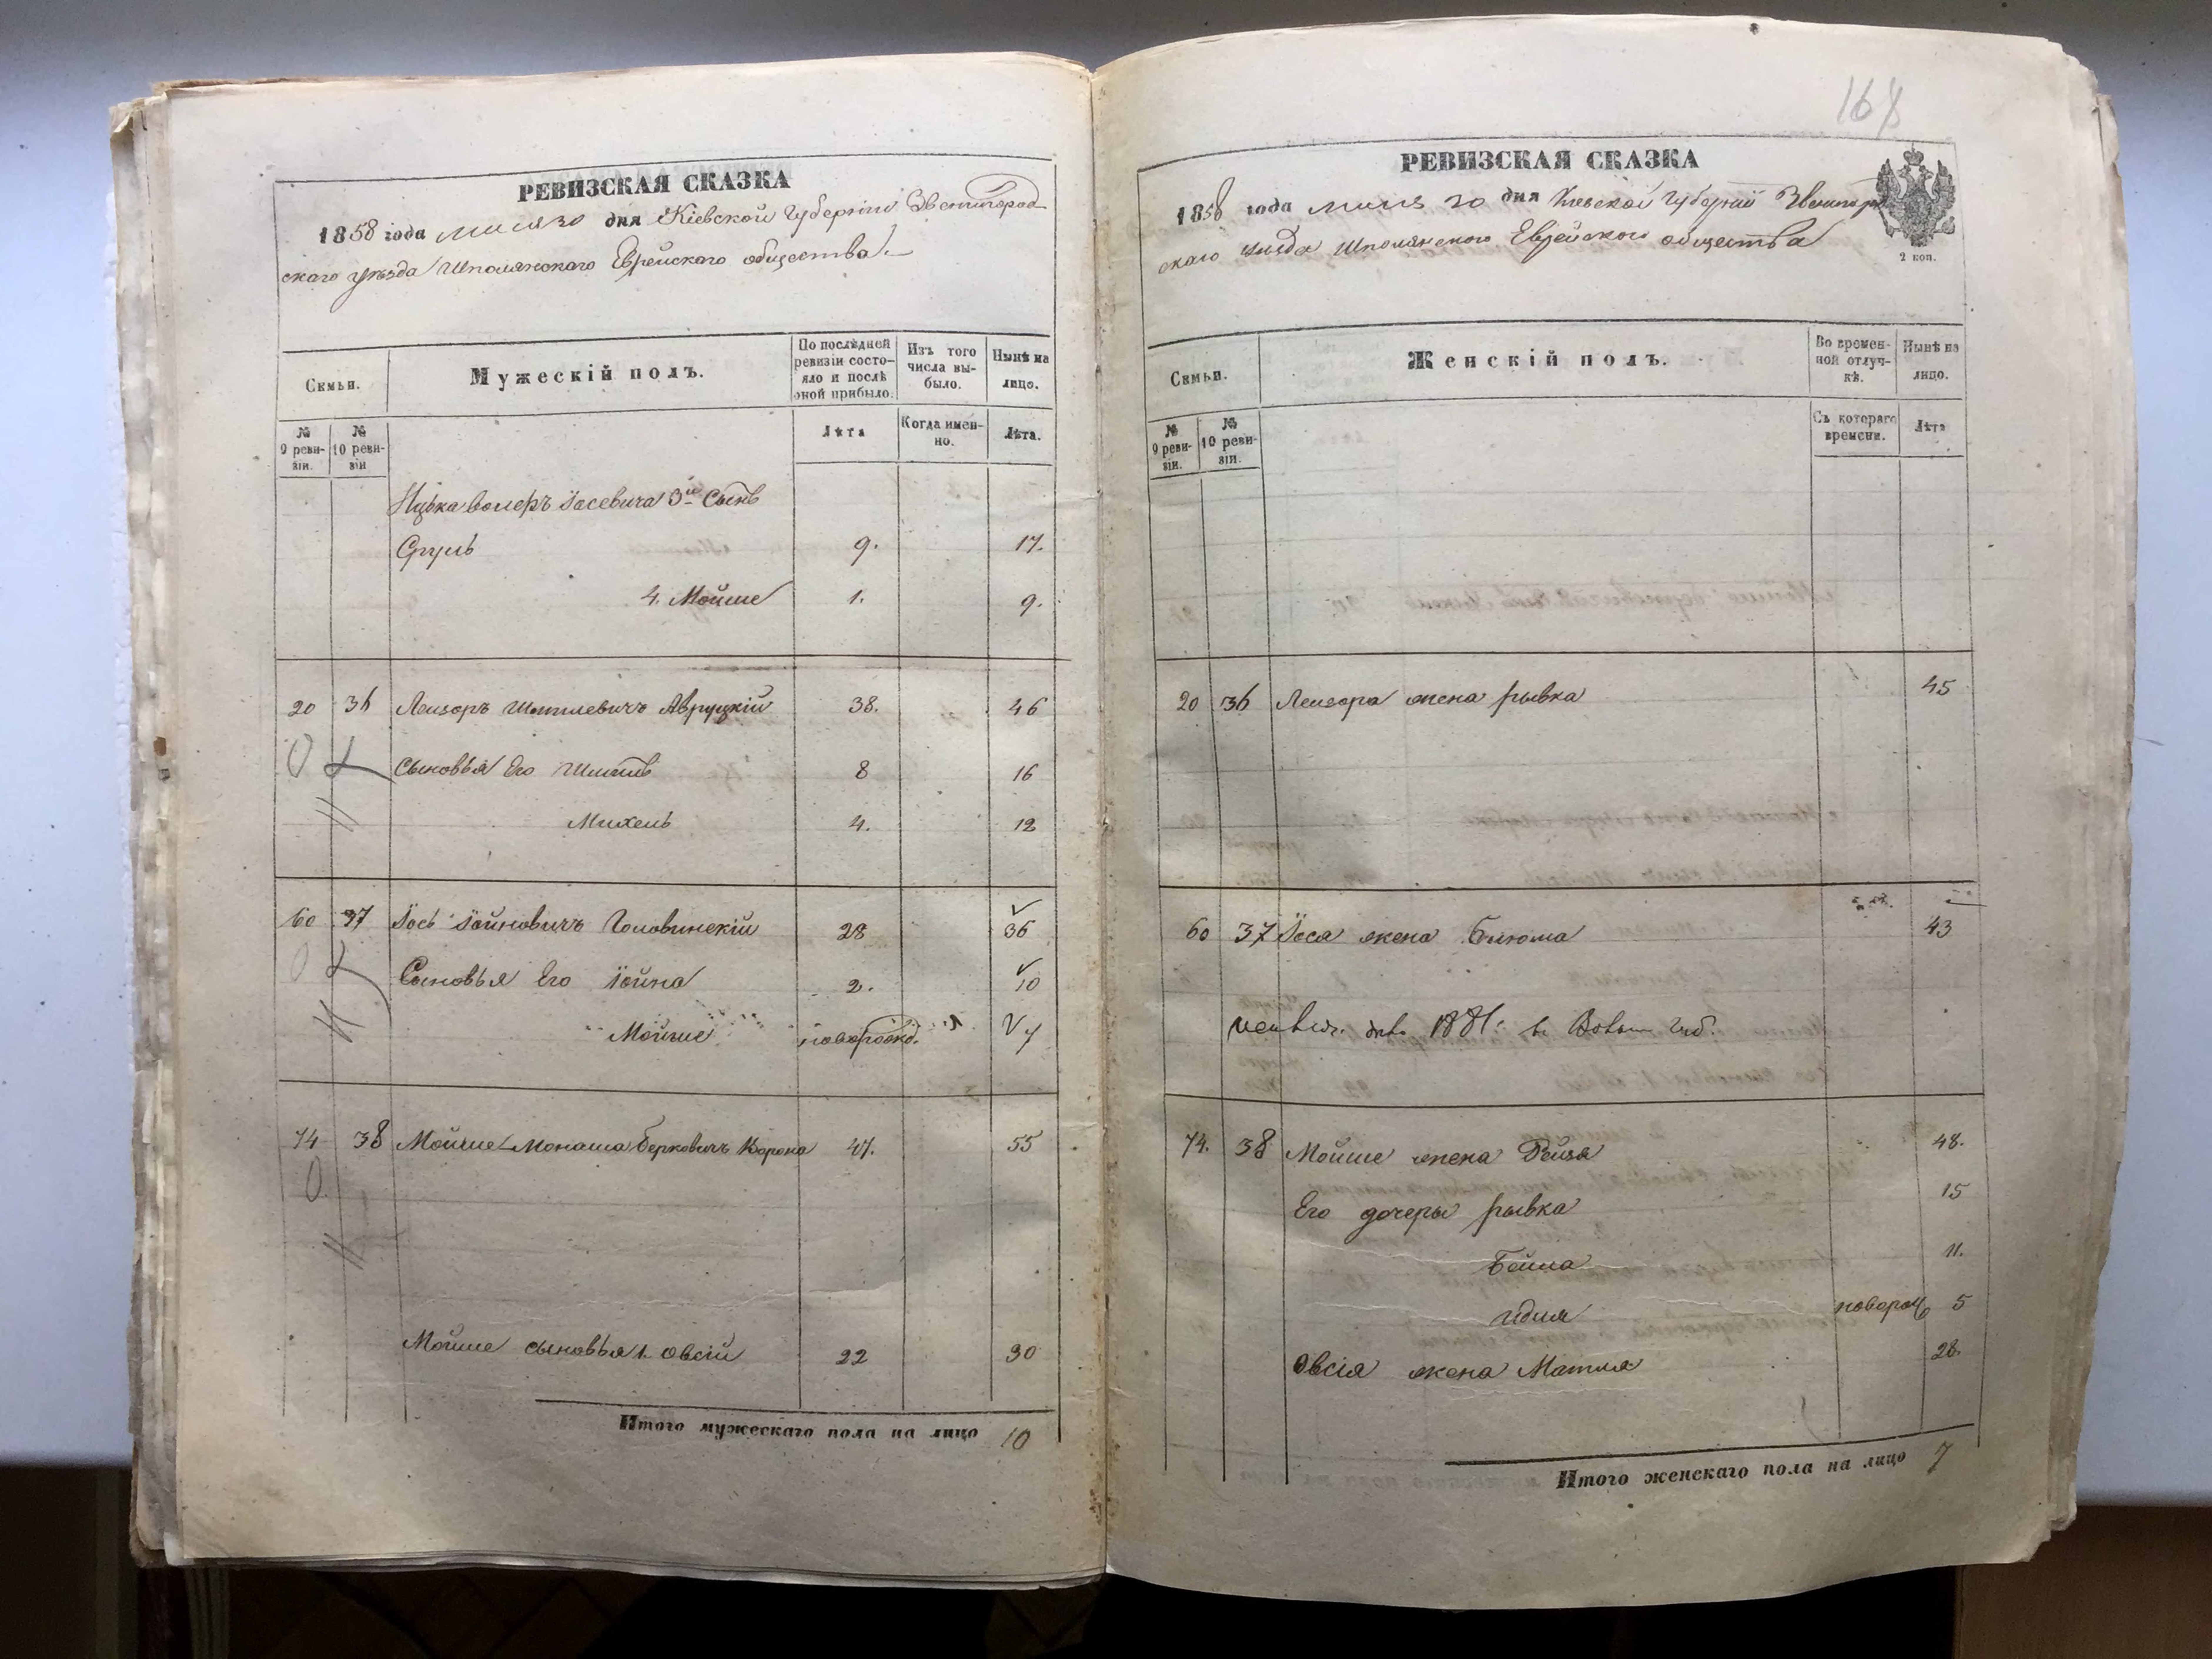 РЕВИЗСКАЯ СКАЗКА
1858 года дня Кіевской Губерніи Звенигород
скаго уезда Шполянскаго Еврейскаго общества.
Семьи.
Мужескій полъ.
По послѣдней ревизіи состо-
яло и послѣ
оной прибыло.
Изъ того
числа вы-
было.
Нынѣ на
лицо.
№
9 реви-
зіи.
№
10 реви-
зіи
Лѣта
Когда имен-
но.
Лѣта.
Іосевича 3й Сынъ
Сруль 9. 17.
4. Мойше 1. 9.
20 36 Лейзоръ Шмилевичъ Авруцкій 38. 46
Сыновья Его 8 16
Михель 4. 12
60 37 Іось Іойновичъ Головинскій 28 36
Сыновья Его Іойна 2. 10
Мойше новорожд. 7
74 38 Мойше Монаша Берковичъ Ворона 47. 55
Мойше сыновья 1. Овсій 22 30
Итого мужескаго пола на лицо 10
168
РЕВИЗСКАЯ СКАЗКА
1858 года дня Киевской Губерніи
скаго уезда Шполянскаго Еврейскаго общества
2 коп.
Семьи.
Женскій полъ.
Во времен-
ной отлуч-
кѣ.
Нынѣ на
лицо.
№
9 реви-
зіи.
№
10 реви-
зіи.
Съ котораго
времени.
Лѣта
20 36 Лейзора жена Рывка 45
60 37 Іося жена Блюма 43
1881
74. 38 Мойше жена Рейзя 48.
Его дочеры Рывка 15
Бейла 11.
Идия новорож 5
Овсія жена Матля 28.
Итого женскаго пола на лицо 7